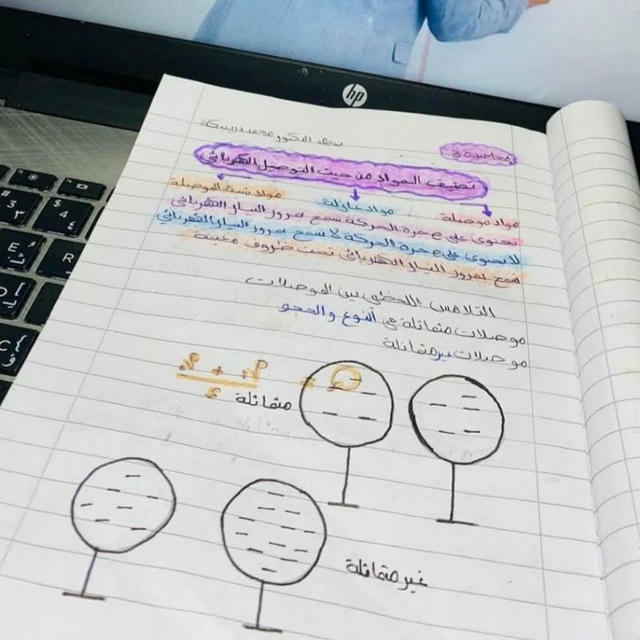 hp
محاضرة
تصنيف المواد من حيث التوصيل الكهربائي
مواد موصلة مواد عازلة مواد شبه الموصلة
تحتوي على e حرة الحركة تسمح بمرور التيار الكهربائي
لا تحتوي على e حرة الحركة لا تسمح بمرور التيار الكهربائي
تسمح بمرور التيار الكهربائي تحت ظروف معينة
التلامس اللحظي بين الموصلات
موصلات متماثلة في النوع والحجم
موصلات غير متماثلة
متماثلة
غير متماثلة